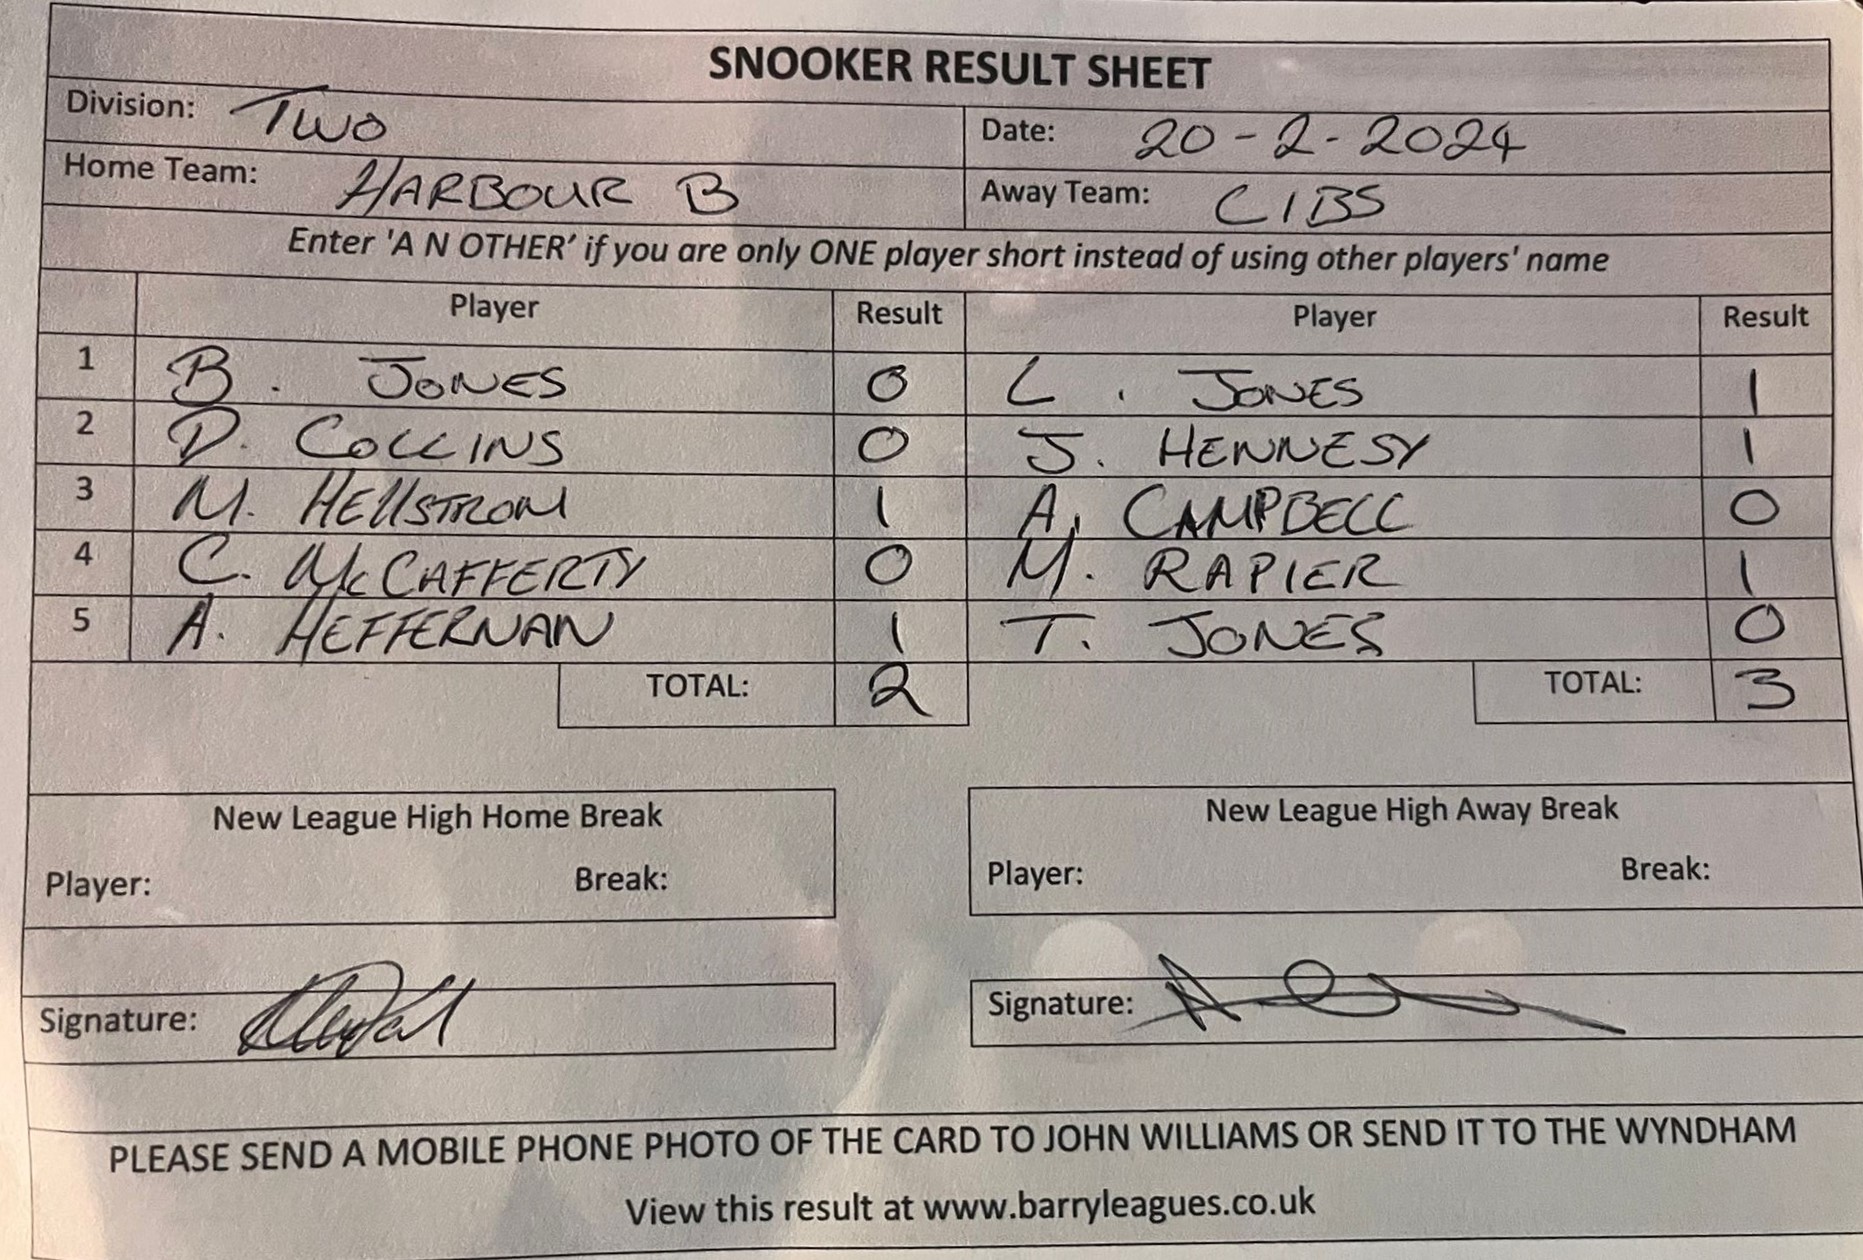 SNOOKER RESULT SHEET
Division: TWO Date: 20-2-2024
Home Team: HARBOUR B Away Team: CIBS
Enter 'A N OTHER' if you are only ONE player short instead of using other players' name
Player Result Player Result
1 B. JONES 0 L. JONES 1
2 D. COLLINS 0 J. HENNESY 1
3 M. HELLSTROM 1 A. CAMPBELL 0
4 C. McCAFFERTY 0 M. RAPIER 1
5 A. HEFFERNAN 1 T. JONES 0
TOTAL: 2 TOTAL: 3
New League High Home Break New League High Away Break
Player: Break: Player: Break:
Signature: Signature:
PLEASE SEND A MOBILE PHONE PHOTO OF THE CARD TO JOHN WILLIAMS OR SEND IT TO THE WYNDHAM
View this result at www.barryleagues.co.uk